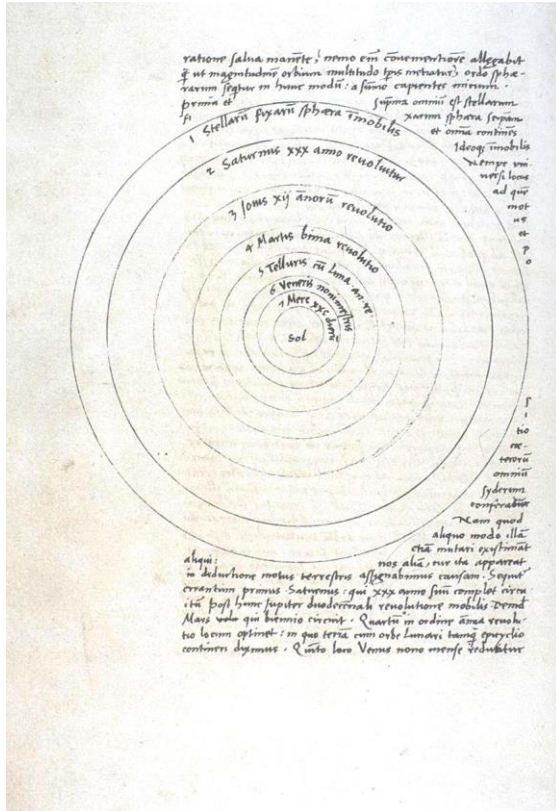 ratione salua manēte, nemo em̄ cōuenientiorē allegabit
q̄ ut magnitudinē orbium multitudo tp̄is metiatur, ordo sphæ-
rarum seq̄tur in hunc modū: a sūmo capientes initium.
prima et suprema omniū est stellarum
fi xarum sphæra seipsam
et omnia continēs
Ideoq; īmobilis
Nempe vni
uersi locus
ad quē
mot
us
et
p
o
1 Stellarū fixarū sphæra īmobilis
2 Saturnus xxx anno reuoluitur
3 Iouis xij añorū reuolutio
4 Martis bima reuolutio
5 Telluris cū Luna an. re.
6 Veneris nonimestris
7 Merc xxc dierū
Sol
s
i
tio
cæ-
terorū
omniū
syderum
conferatur
Nam quod
aliquo modo illā
etiā mutari existimāt
aliqui: nos aliā, cur ita appareat
in deductione motus terrestris assignabimus causam. Sequit᷑
errantium primus Saturnus: qui xxx anno suū complet circu
itū post hunc Jupiter duodecennali reuolutione mobilis Deinde
Mars volo qui biennio circuit. Quartū in ordine ānua reuolu-
tio locum optinet: in quo terrā cum orbe Lunari tamq̄ epicyclio
contineri diximus. Quīto loco Venus nono mense reducitur